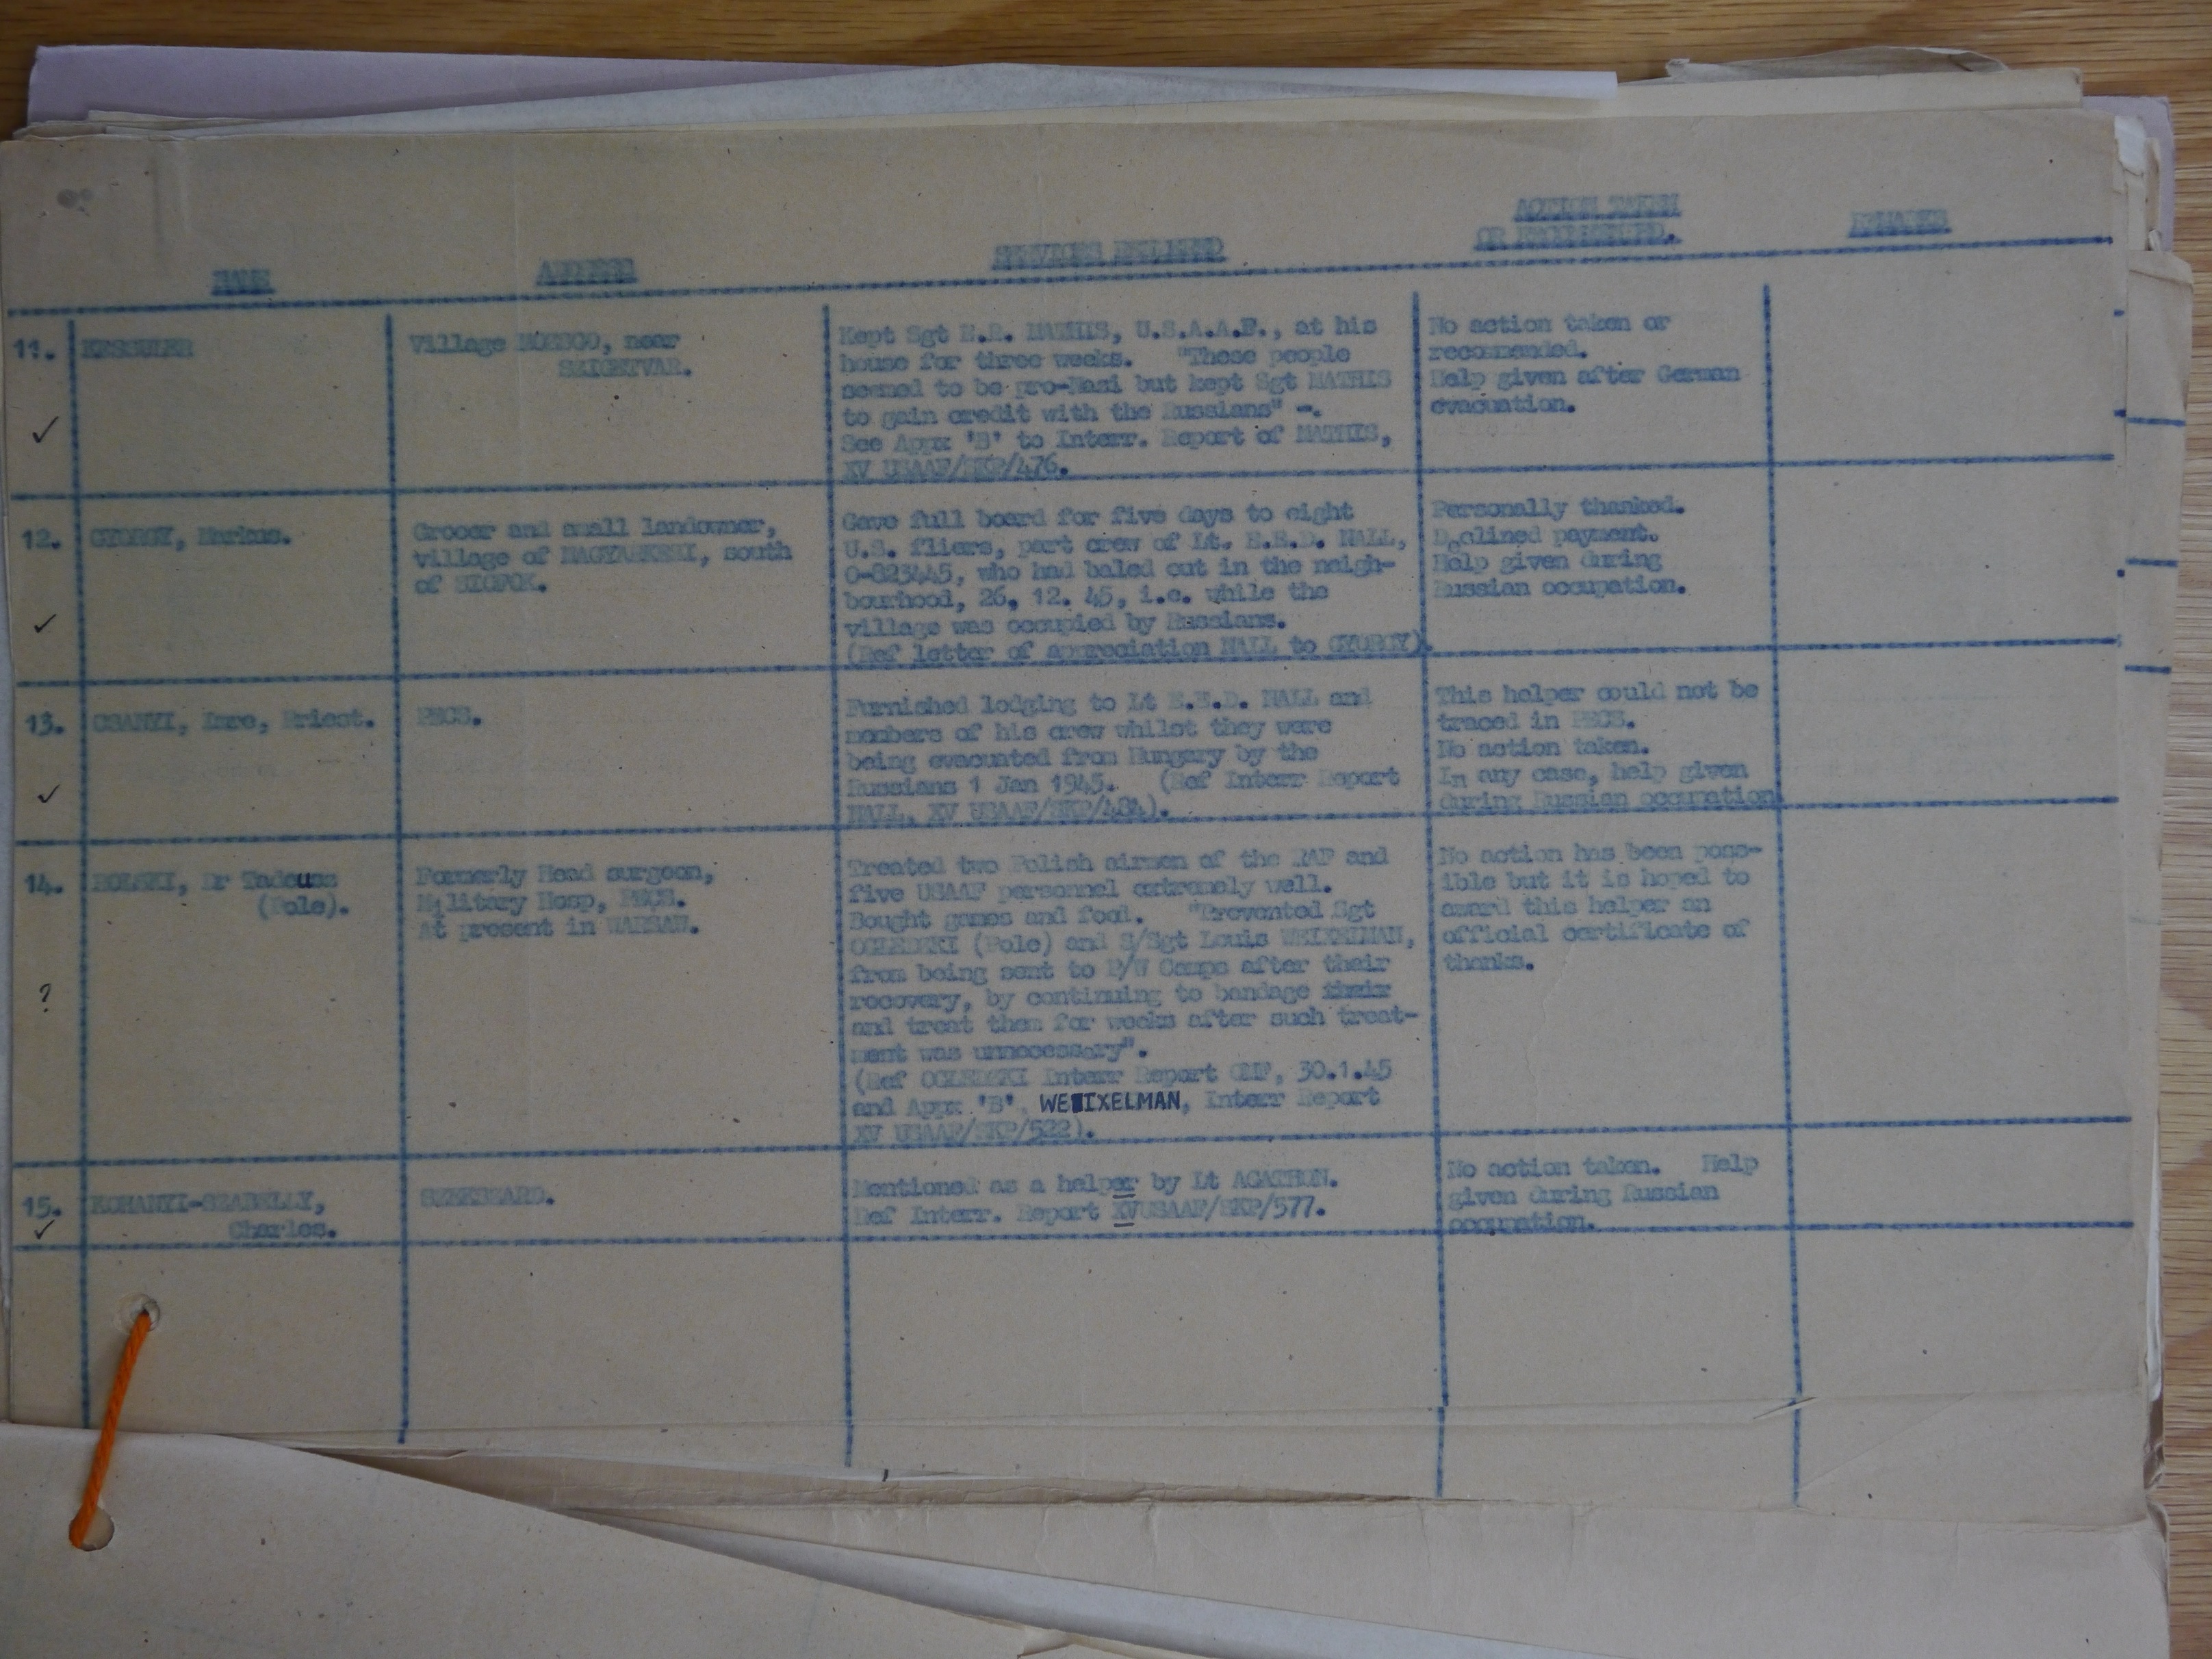 NAME
ADDRESS
SERVICES RENDERED
ACTION TAKEN
OR RECOMMENDED.
REMARKS
11.
Village near
SZIGETVAR.
Kept Sgt E.R. MATHIS, U.S.A.A.F., at his
house for three weeks. "These people
seemed to be pro-Nazi but kept Sgt MATHIS
to gain credit with the Russians" -.
See Appx 'B' to Interr. Report of MATHIS,
XV USAAF/SKP/476.
No action taken or
recommended.
Help given after German
evacuation.
✓
12.
GYORGY, Markus.
Grocer and small landowner,
village of south
of SIOFOK.
Gave full board for five days to eight
U.S. fliers, part crew of Lt. E.E.D. HALL,
O-823445, who had baled out in the neigh-
bourhood, 26, 12. 45, i.e. while the
village was occupied by Russians.
(Ref letter of appreciation HALL to GYORGY).
Personally thanked.
Declined payment.
Help given during
Russian occupation.
✓
13.
CSANYI, Imre, Priest.
PECS.
Furnished lodging to Lt E.E.D. HALL and
members of his crew whilst they were
being evacuated from Hungary by the
Russians 1 Jan 1945. (Ref Interr Report
HALL, XV USAAF/SKP/484).
This helper could not be
traced in PECS.
No action taken.
In any case, help given
during Russian occupation
✓
14.
Dr Tadeusz
(Pole).
Formerly Head surgeon,
Military Hosp, PECS.
At present in WARSAW.
Treated two Polish airmen of the RAF and
five USAAF personnel extremely well.
Bought games and food. "Prevented Sgt
OGLEDZKI (Pole) and S/Sgt Louis WEIXELMAN,
from being sent to P/W Camps after their
recovery, by continuing to bandage their
and treat them for weeks after such treat-
ment was unnecessary".
(Ref OGLEDZKI Interr Report CMF, 30.1.45
and Appx 'B', WEIXELMAN, Interr Report
XV USAAF/SKP/522).
No action has been poss-
ible but it is hoped to
award this helper an
official certificate of
thanks.
?
15.
Charles.
SZEKSZARD.
Mentioned as a helper by Lt AGATHON.
Ref Interr. Report XVUSAAF/SKP/577.
No action taken. Help
given during Russian
occupation.
✓